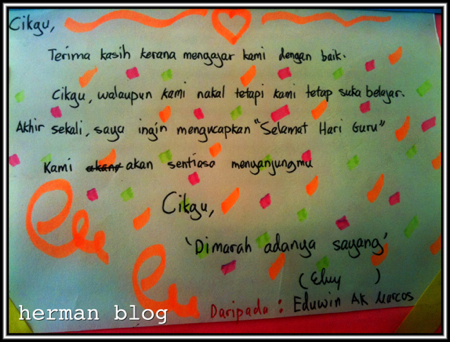 Cikgu,
Terima kasih kerana mengajar kami dengan baik.
Cikgu, walaupun kami nakal tetapi kami tetap suka belajar.
Akhir sekali, saya ingin mengucapkan "Selamat Hari Guru"
Kami akan sentiasa menyanjungmu
Cikgu,
'Dimarah adanya sayang'
Daripada : Eduwin AK Marcos
herman blog